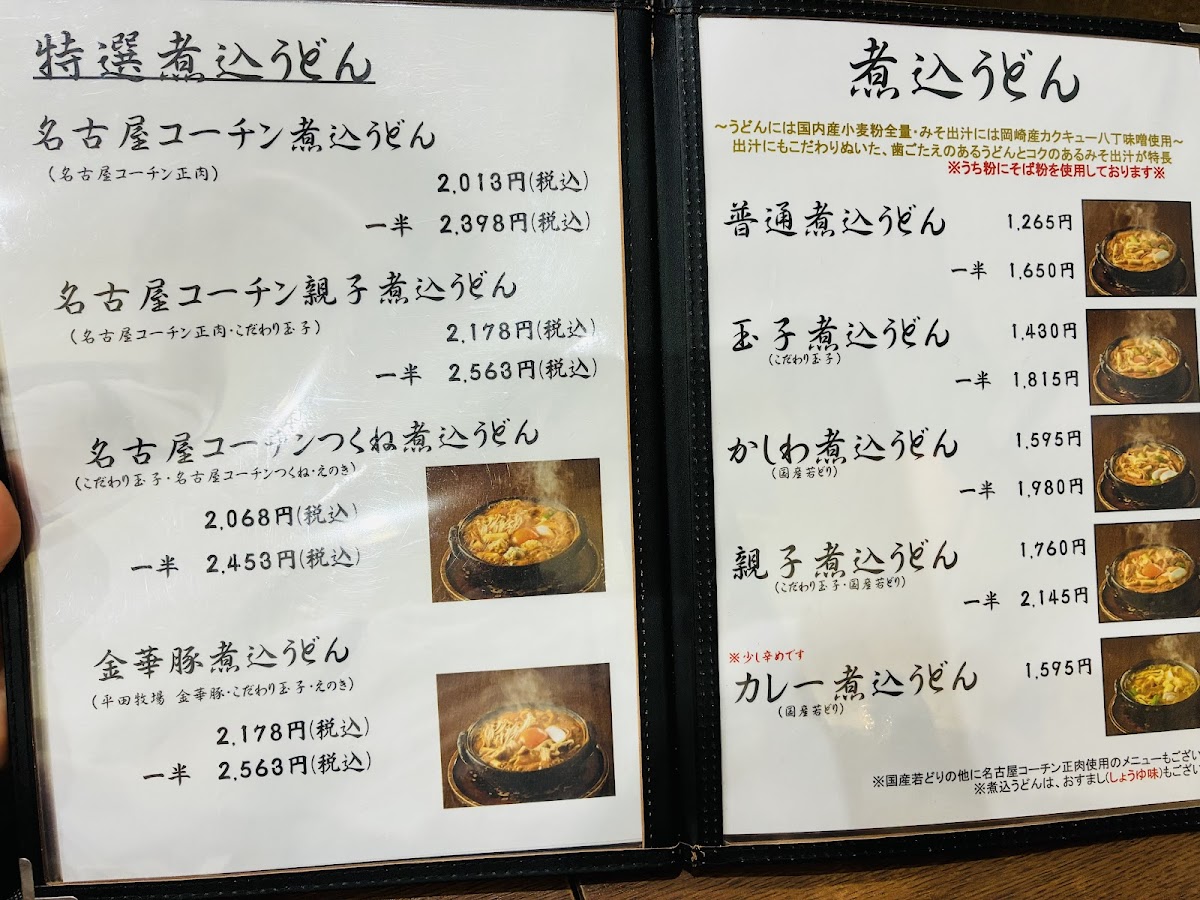 特選煮込うどん
名古屋コーチン煮込うどん
(名古屋コーチン正肉)
2,013円(税込)
一半 2,398円(税込)
名古屋コーチン親子煮込うどん
(名古屋コーチン正肉・こだわり玉子)
2,178円(税込)
一半 2,563円(税込)
名古屋コーチンつくね煮込うどん
(こだわり玉子・名古屋コーチンつくね・えのき)
2,068円(税込)
一半 2,453円(税込)
金華豚煮込うどん
(平田牧場 金華豚・こだわり玉子・えのき)
2,178円(税込)
一半 2,563円(税込)
煮込うどん
～うどんには国内産小麦粉全量・みそ出汁には岡崎産カクキュー八丁味噌使用～
出汁にもこだわりぬいた、歯ごたえのあるうどんとコクのあるみそ出汁が特長
※うち粉にそば粉を使用しております※
普通煮込うどん 1,265円
一半 1,650円
玉子煮込うどん 1,430円
(こだわり玉子)
一半 1,815円
かしわ煮込うどん 1,595円
(国産若どり)
一半 1,980円
親子煮込うどん 1,760円
(こだわり玉子・国産若どり)
一半 2,145円
※少し辛めです
カレー煮込うどん 1,595円
(国産若どり)
※国産若どりの他に名古屋コーチン正肉使用のメニューもござい
※煮込うどんは、おすまし(しょうゆ味)もござい